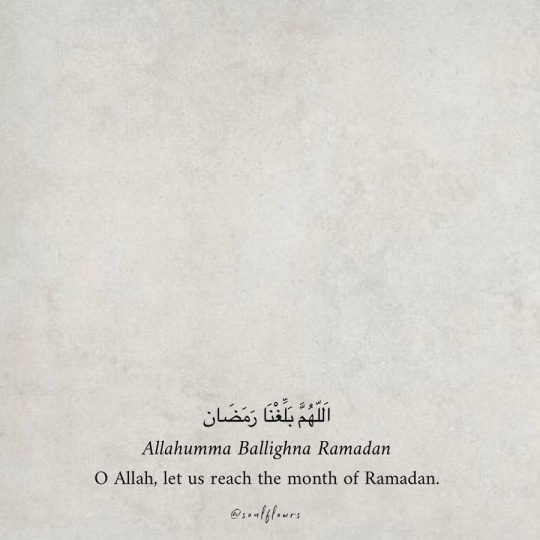 اَللّٰهُمَّ بَلِّغْنَا رَمَضَان
Allahumma Ballighna Ramadan
O Allah, let us reach the month of Ramadan.
@soulflowrs